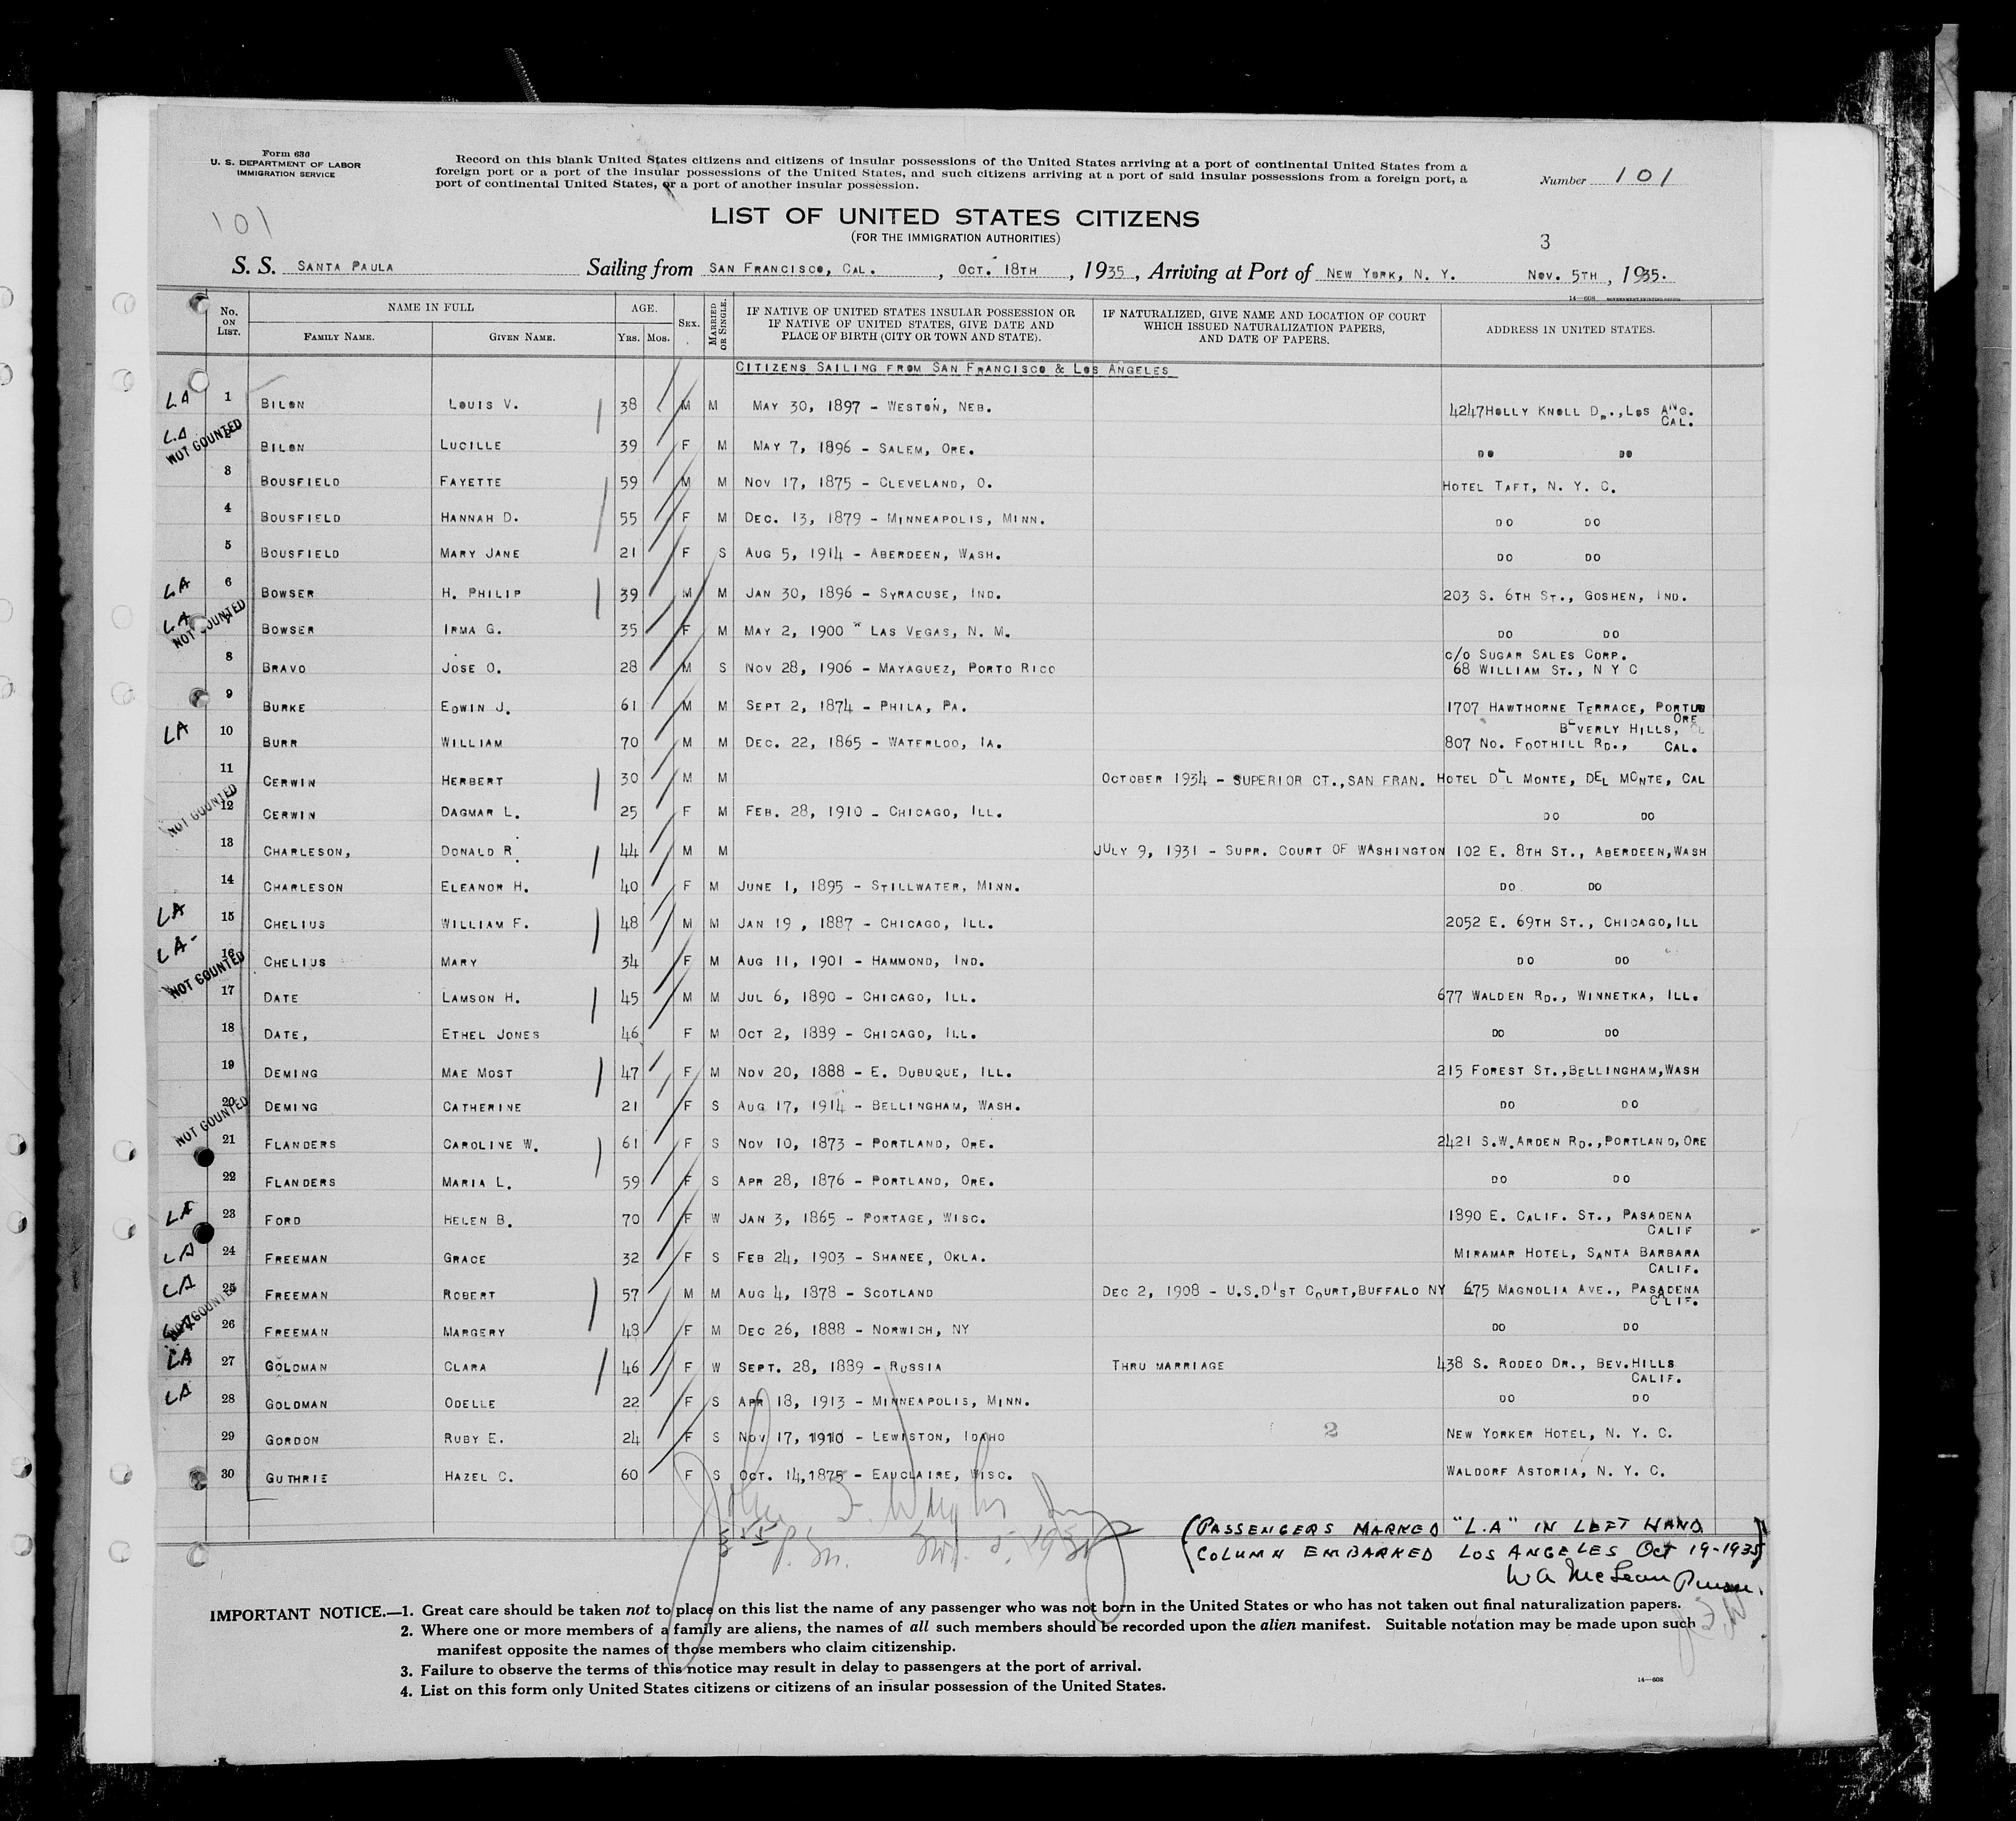 Form 630
U. S. DEPARTMENT OF LABOR
IMMIGRATION SERVICE
Record on this blank United States citizens and citizens of insular possessions of the United States arriving at a port of continental United States from a
foreign port or a port of the insular possessions of the United States, and such citizens arriving at a port of said insular possessions from a foreign port, a
port of continental United States, or a port of another insular possession.
Number 101
101
LIST OF UNITED STATES CITIZENS
(FOR THE IMMIGRATION AUTHORITIES)
3
S. S. SANTA PAULA Sailing from SAN FRANCISCO, CAL., OCT. 18TH, 1935, Arriving at Port of NEW YORK, N. Y. NOV. 5TH, 1935.
14—608 GOVERNMENT PRINTING OFFICE
No. ON LIST. NAME IN FULL FAMILY NAME. GIVEN NAME. AGE. YRS. MOS. SEX. MARRIED OR SINGLE. IF NATIVE OF UNITED STATES INSULAR POSSESSION OR IF NATIVE OF UNITED STATES, GIVE DATE AND PLACE OF BIRTH (CITY OR TOWN AND STATE). IF NATURALIZED, GIVE NAME AND LOCATION OF COURT WHICH ISSUED NATURALIZATION PAPERS, AND DATE OF PAPERS. ADDRESS IN UNITED STATES.
CITIZENS SAILING FROM SAN FRANCISCO & LOS ANGELES
LA 1 BILON LOUIS V. 38 M M MAY 30, 1897 - WESTON, NEB. 4247 HOLLY KNOLL DR., LOS ANG. CAL.
LA NOT COUNTED BILON LUCILLE 39 F M MAY 7, 1896 - SALEM, ORE. DO DO
3 BOUSFIELD FAYETTE 59 M M NOV 17, 1875 - CLEVELAND, O. HOTEL TAFT, N. Y. C.
4 BOUSFIELD HANNAH D. 55 F M DEC. 13, 1879 - MINNEAPOLIS, MINN. DO DO
5 BOUSFIELD MARY JANE 21 F S AUG 5, 1914 - ABERDEEN, WASH. DO DO
LA 6 BOWSER H. PHILIP 39 M M JAN 30, 1896 - SYRACUSE, IND. 203 S. 6TH ST., GOSHEN, IND.
LA NOT COUNTED BOWSER IRMA G. 35 F M MAY 2, 1900 " LAS VEGAS, N. M. DO DO
8 BRAVO JOSE O. 28 M S NOV 28, 1906 - MAYAGUEZ, PORTO RICO C/O SUGAR SALES CORP. 68 WILLIAM ST., N Y C
9 BURKE EDWIN J. 61 M M SEPT 2, 1874 - PHILA, PA. 1707 HAWTHORNE TERRACE, PORTLD ORE
LA 10 BURR WILLIAM 70 M M DEC. 22, 1865 - WATERLOO, IA. 807 NO. FOOTHILL RD., BEVERLY HILLS, CAL.
11 CERWIN HERBERT 30 M M OCTOBER 1934 - SUPERIOR CT., SAN FRAN. HOTEL DEL MONTE, DEL MONTE, CAL
NOT COUNTED 12 CERWIN DAGMAR L. 25 F M FEB. 28, 1910 - CHICAGO, ILL. DO DO
13 CHARLESON, DONALD R. 44 M M JULY 9, 1931 - SUPR. COURT OF WASHINGTON 102 E. 8TH ST., ABERDEEN, WASH
14 CHARLESON ELEANOR H. 40 F M JUNE 1, 1895 - STILLWATER, MINN. DO DO
LA 15 CHELIUS WILLIAM F. 48 M M JAN 19, 1887 - CHICAGO, ILL. 2052 E. 69TH ST., CHICAGO, ILL
LA- 16 NOT COUNTED CHELIUS MARY 34 F M AUG 11, 1901 - HAMMOND, IND. DO DO
17 DATE LAMSON H. 45 M M JUL 6, 1890 - CHICAGO, ILL. 677 WALDEN RD., WINNETKA, ILL.
18 DATE, ETHEL JONES 46 F M OCT 2, 1889 - CHICAGO, ILL. DO DO
19 DEMING MAE MOST 47 F M NOV 20, 1888 - E. DUBUQUE, ILL. 215 FOREST ST., BELLINGHAM, WASH
20 NOT COUNTED DEMING CATHERINE 21 F S AUG 17, 1914 - BELLINGHAM, WASH. DO DO
21 FLANDERS CAROLINE W. 61 F S NOV 10, 1873 - PORTLAND, ORE. 2421 S.W. ARDEN RD., PORTLAND, ORE
22 FLANDERS MARIA L. 59 F S APR 28, 1876 - PORTLAND, ORE. DO DO
LA 23 FORD HELEN B. 70 F W JAN 3, 1865 - PORTAGE, WISC. 1890 E. CALIF. ST., PASADENA CALIF
LA 24 FREEMAN GRACE 32 F S FEB 24, 1903 - SHANEE, OKLA. MIRAMAR HOTEL, SANTA BARBARA CALIF.
LA 25 FREEMAN ROBERT 57 M M AUG 4, 1878 - SCOTLAND DEC 2, 1908 - U.S. DIST COURT, BUFFALO NY 675 MAGNOLIA AVE., PASADENA CALIF.
LA NOT COUNTED 26 FREEMAN MARGERY 48 F M DEC 26, 1888 - NORWICH, NY DO DO
LA 27 GOLDMAN CLARA 46 F W SEPT. 28, 1889 - RUSSIA THRU MARRIAGE 438 S. RODEO DR., BEV. HILLS CALIF.
LA 28 GOLDMAN ODELLE 22 F S APR 18, 1913 - MINNEAPOLIS, MINN. DO DO
29 GORDON RUBY E. 24 F S NOV 17, 1910 - LEWISTON, IDAHO 2 NEW YORKER HOTEL, N. Y. C.
30 GUTHRIE HAZEL C. 60 F S OCT. 14, 1875 - EAUCLAIRE, WISC. WALDORF ASTORIA, N. Y. C.
(PASSENGERS MARKED "L.A" IN LEFT HAND
COLUMN EMBARKED LOS ANGELES Oct 19-1935)
W A McLean Purser.
IMPORTANT NOTICE.—1. Great care should be taken not to place on this list the name of any passenger who was not born in the United States or who has not taken out final naturalization papers.
2. Where one or more members of a family are aliens, the names of all such members should be recorded upon the alien manifest. Suitable notation may be made upon such
manifest opposite the names of those members who claim citizenship.
3. Failure to observe the terms of this notice may result in delay to passengers at the port of arrival.
4. List on this form only United States citizens or citizens of an insular possession of the United States.
14—608